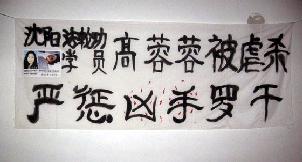 沈阳法轮功学员高蓉蓉被虐杀
严惩凶手罗干